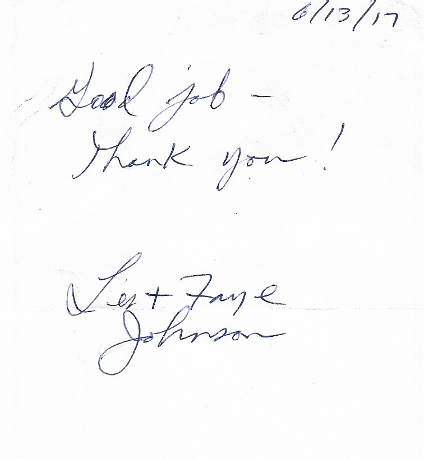 6/13/17
Good job -
Thank you!
Les + Faye
Johnson